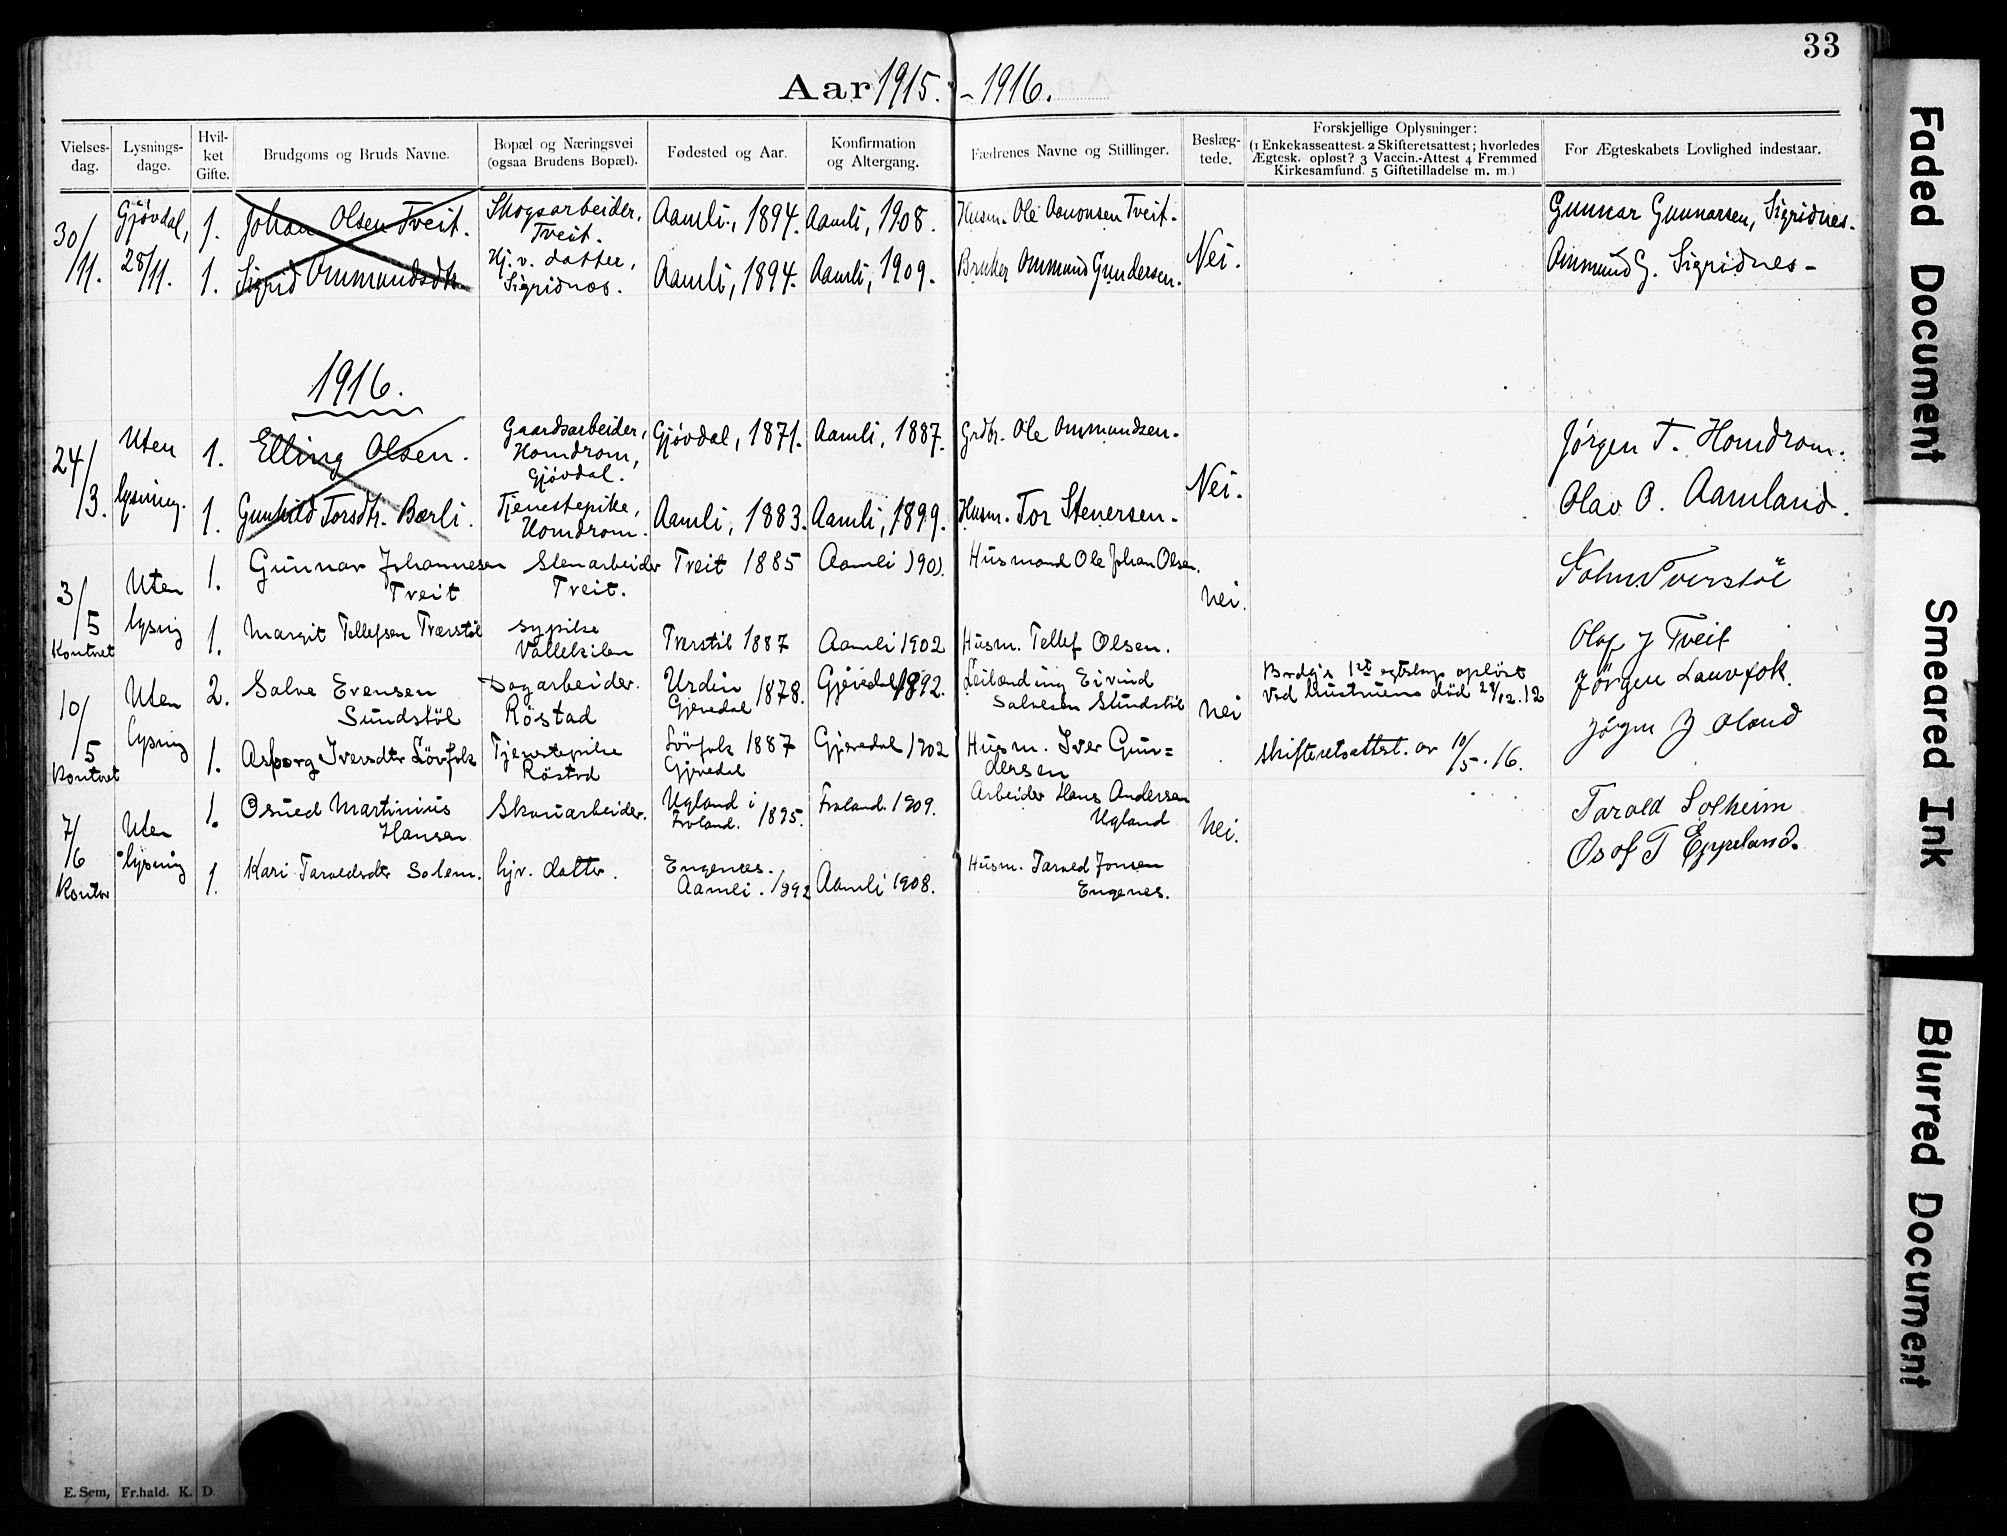 33
Aar 1915. - 1916.
Vielses-dag. Lysnings-dage. Hvil-ket Gifte. Brudgoms og Bruds Navne. Bopæl og Næringsvei (ogsaa Brudens Bopæl). Fødested og Aar. Konfirmation og Altergang. Fædrenes Navne og Stillinger. Beslæg-tede. Forskjellige Oplysninger: (1 Enkekasseattest. 2 Skifteretsattest; hvorledes Ægtesk. opløst? 3 Vaccin.-Attest 4 Fremmed Kirkesamfund. 5 Giftetilladelse m. m.) For Ægteskabets Lovlighed indestaar.
30/11. Gjövdal, 28/11. 1. Johan Olsen Tveit. Skogsarbeider, Tveit. Aamli, 1894. Aamli, 1908. Husm. Ole Aanonsen Tveit. Nei. Gunnar Gunnarsen, Sigridnes.
1. Sigrid Ommundsdtr. Hj. v. datter, Sigridnes. Aamli, 1894. Aamli, 1909. Bruker Ommund Gundersen. Ommund G. Sigridnes
1916.
24/3. Uten lysning. 1. Elling Olsen. Gaardsarbeider, Homdrom, Gjövdal. Gjövdal, 1871. Aamli, 1887. Grdbr. Ole Ommundsen. Nei. Jørgen T. Homdrom.
1. Gunhild Torsdtr. Bærli. Tjenestepike, Homdrom. Aamli, 1883. Aamli, 1899. Husm. Tor Stenersen. Olav O. Aamland.
3/5 Kontoret Uten lysnig 1. Gunnar Johannesen Tveit Stenarbeider Tveit. Tveit 1885 Aamli 1901. Husmand Ole Johan Olsen. nei.
1. Margit Tellefsen Tværstöl sypike Vallekilen Tverstöl 1887 Aamli 1902 Husm. Tellef Olsen. Olaf J Tveit
10/5 Kontoret Uten lysnig 2. Salve Evensen Sundstöl Dagarbeider. Röstad Urdin Gjevedal 1878. Gjevedal 1892. Leilænding Eivind Salvesen Sundstöl nei Brudg's 1ste egteskap oplöst ved hustruens död 24/12.12 Jörgen Lauvfok.
1. Asborg Iversdtr Lövfok Tjenestepike Röstad Lövfok 1887 Gjevedal Gjevedal 1902 Husm. Iver Gundersen skifteretsattest. av 10/5.16. Jögen J Oland
7/6 Kontor Uten lysnig 1. Osued Martinius Hansen Skouarbeider. Ugland i Froland. 1895. Froland. 1909. Arbeider Hans Andersen Ugland nei. Tarald Solheim
1. Kari Taraldsdtr Solem. hjv. datter. Engenes. Aamli. 1892 Aamli 1908. Husm. Tarald Jonsen Engenes. Osof T Eppeland.
E. Sem, Fr.hald. K. D.
Faded Document
Smeared Ink
Blurred Document